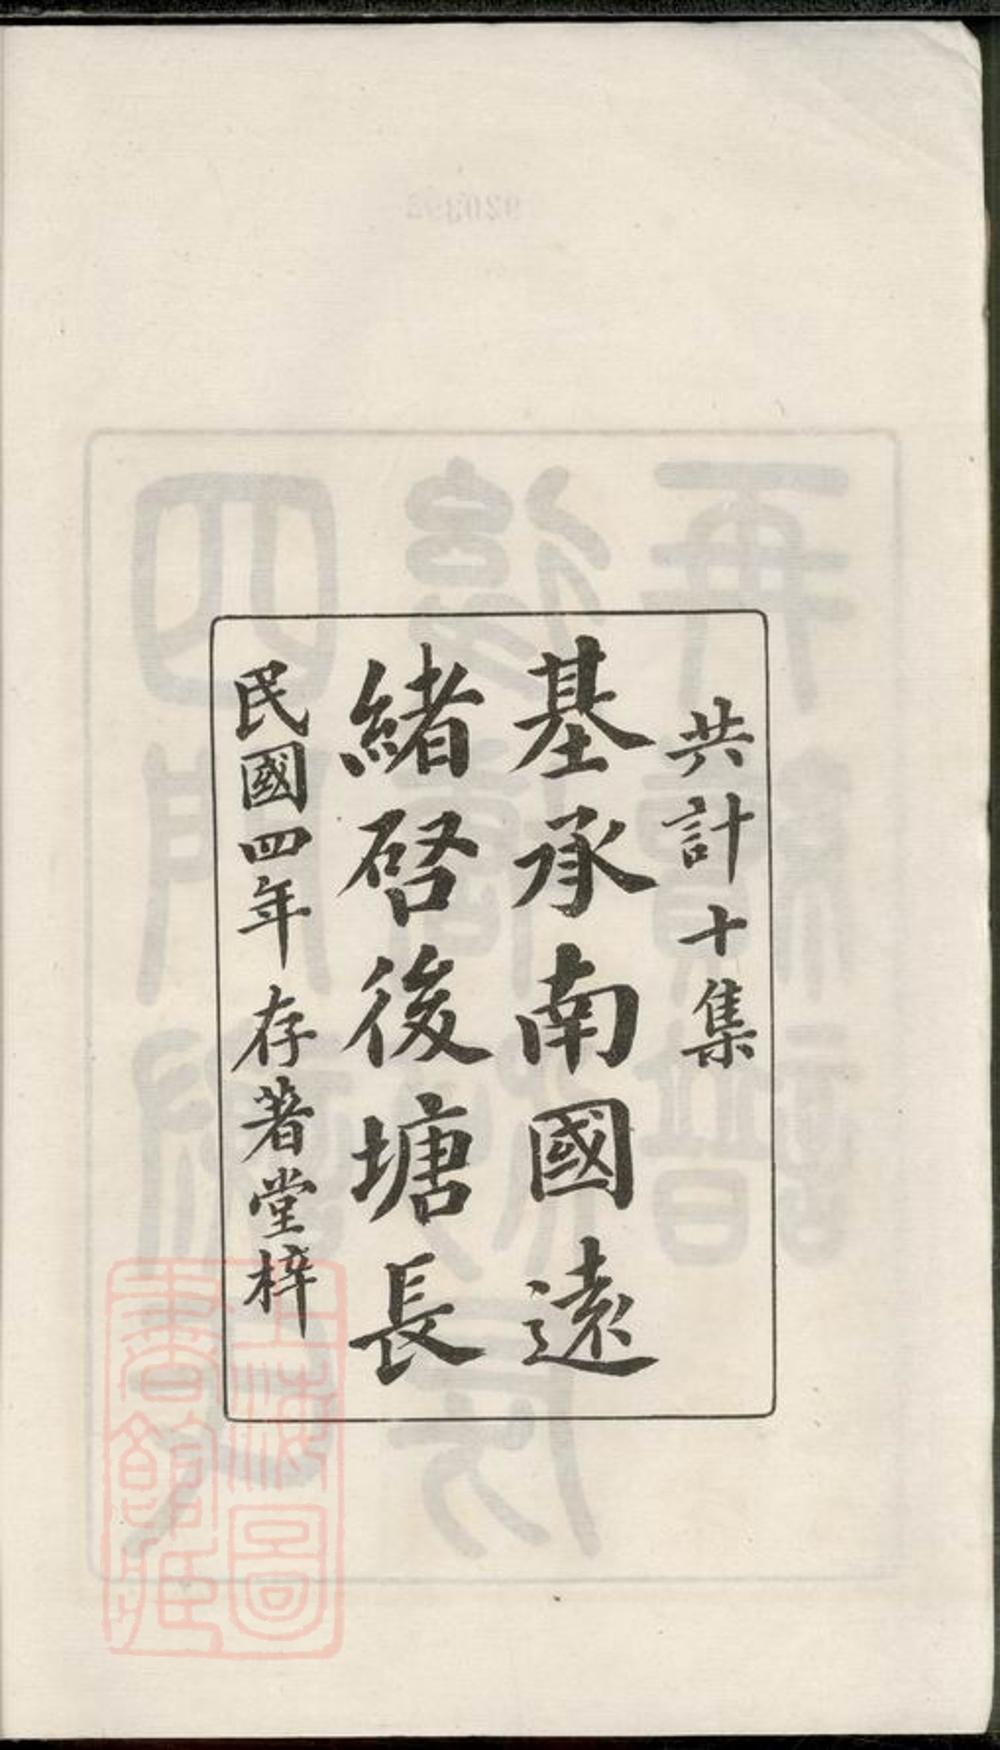 共計十集
基承南國遠
緒啓後塘長
民國四年 存著堂梓
上海圖書館藏